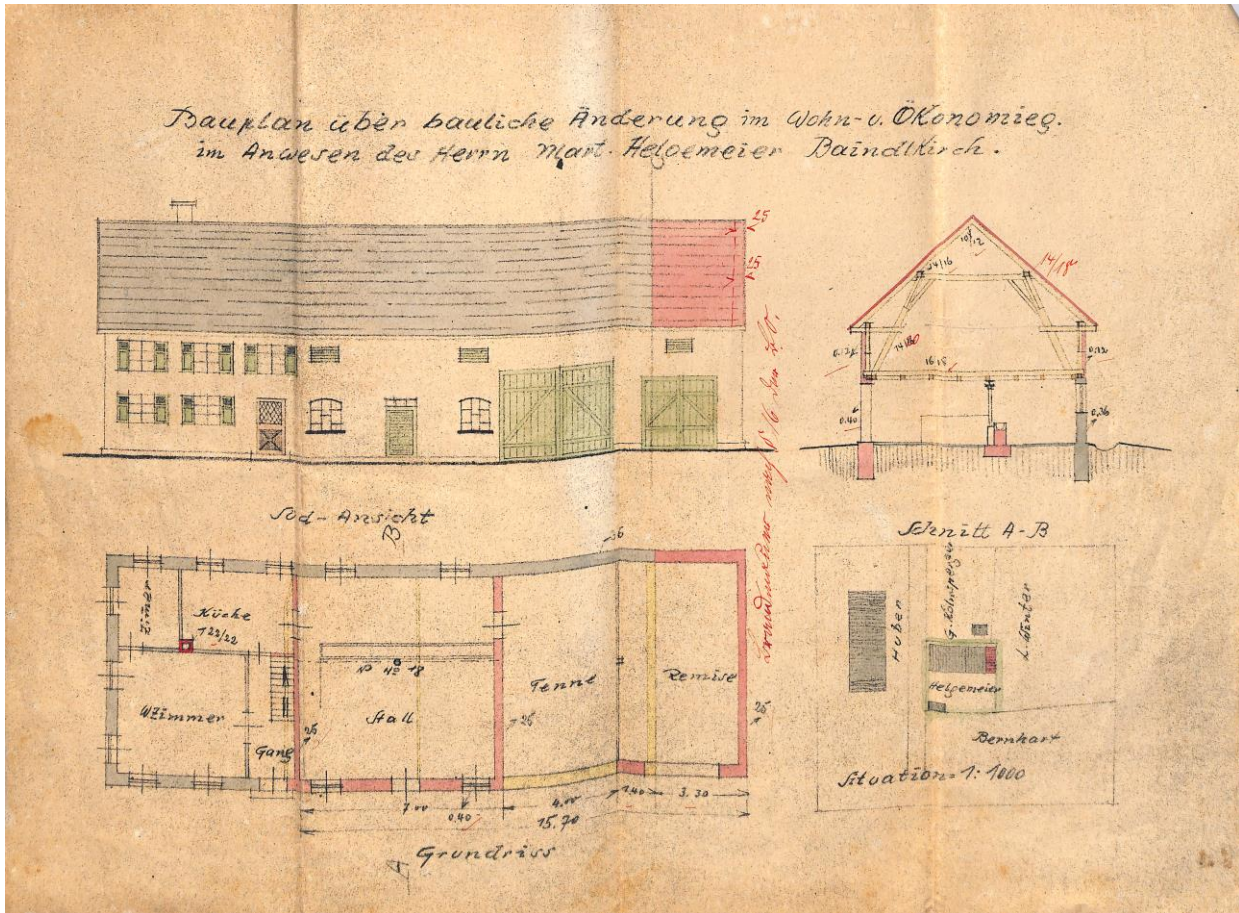 Bauplan über bauliche Änderung im Wohn- u. Ökonomieg.
im Anwesen des Herrn Mart. Helgemeier Baindlkirch.
25
15
10/12
14/16
14/18
16 18
0.12
0.12
0.40
0,36
Süd-Ansicht
Schnitt A-B
B
36
Zimer
Küche
22/22
WZimmer
Gang
NP No 18
Stall
Tenne
Remise
25
25
25
7 00
0.40
4.00
1.40
3.30
15.70
A
Grundriss
Huber
L. Winter
Helgemeier
Bernhart
Situation = 1: 1000